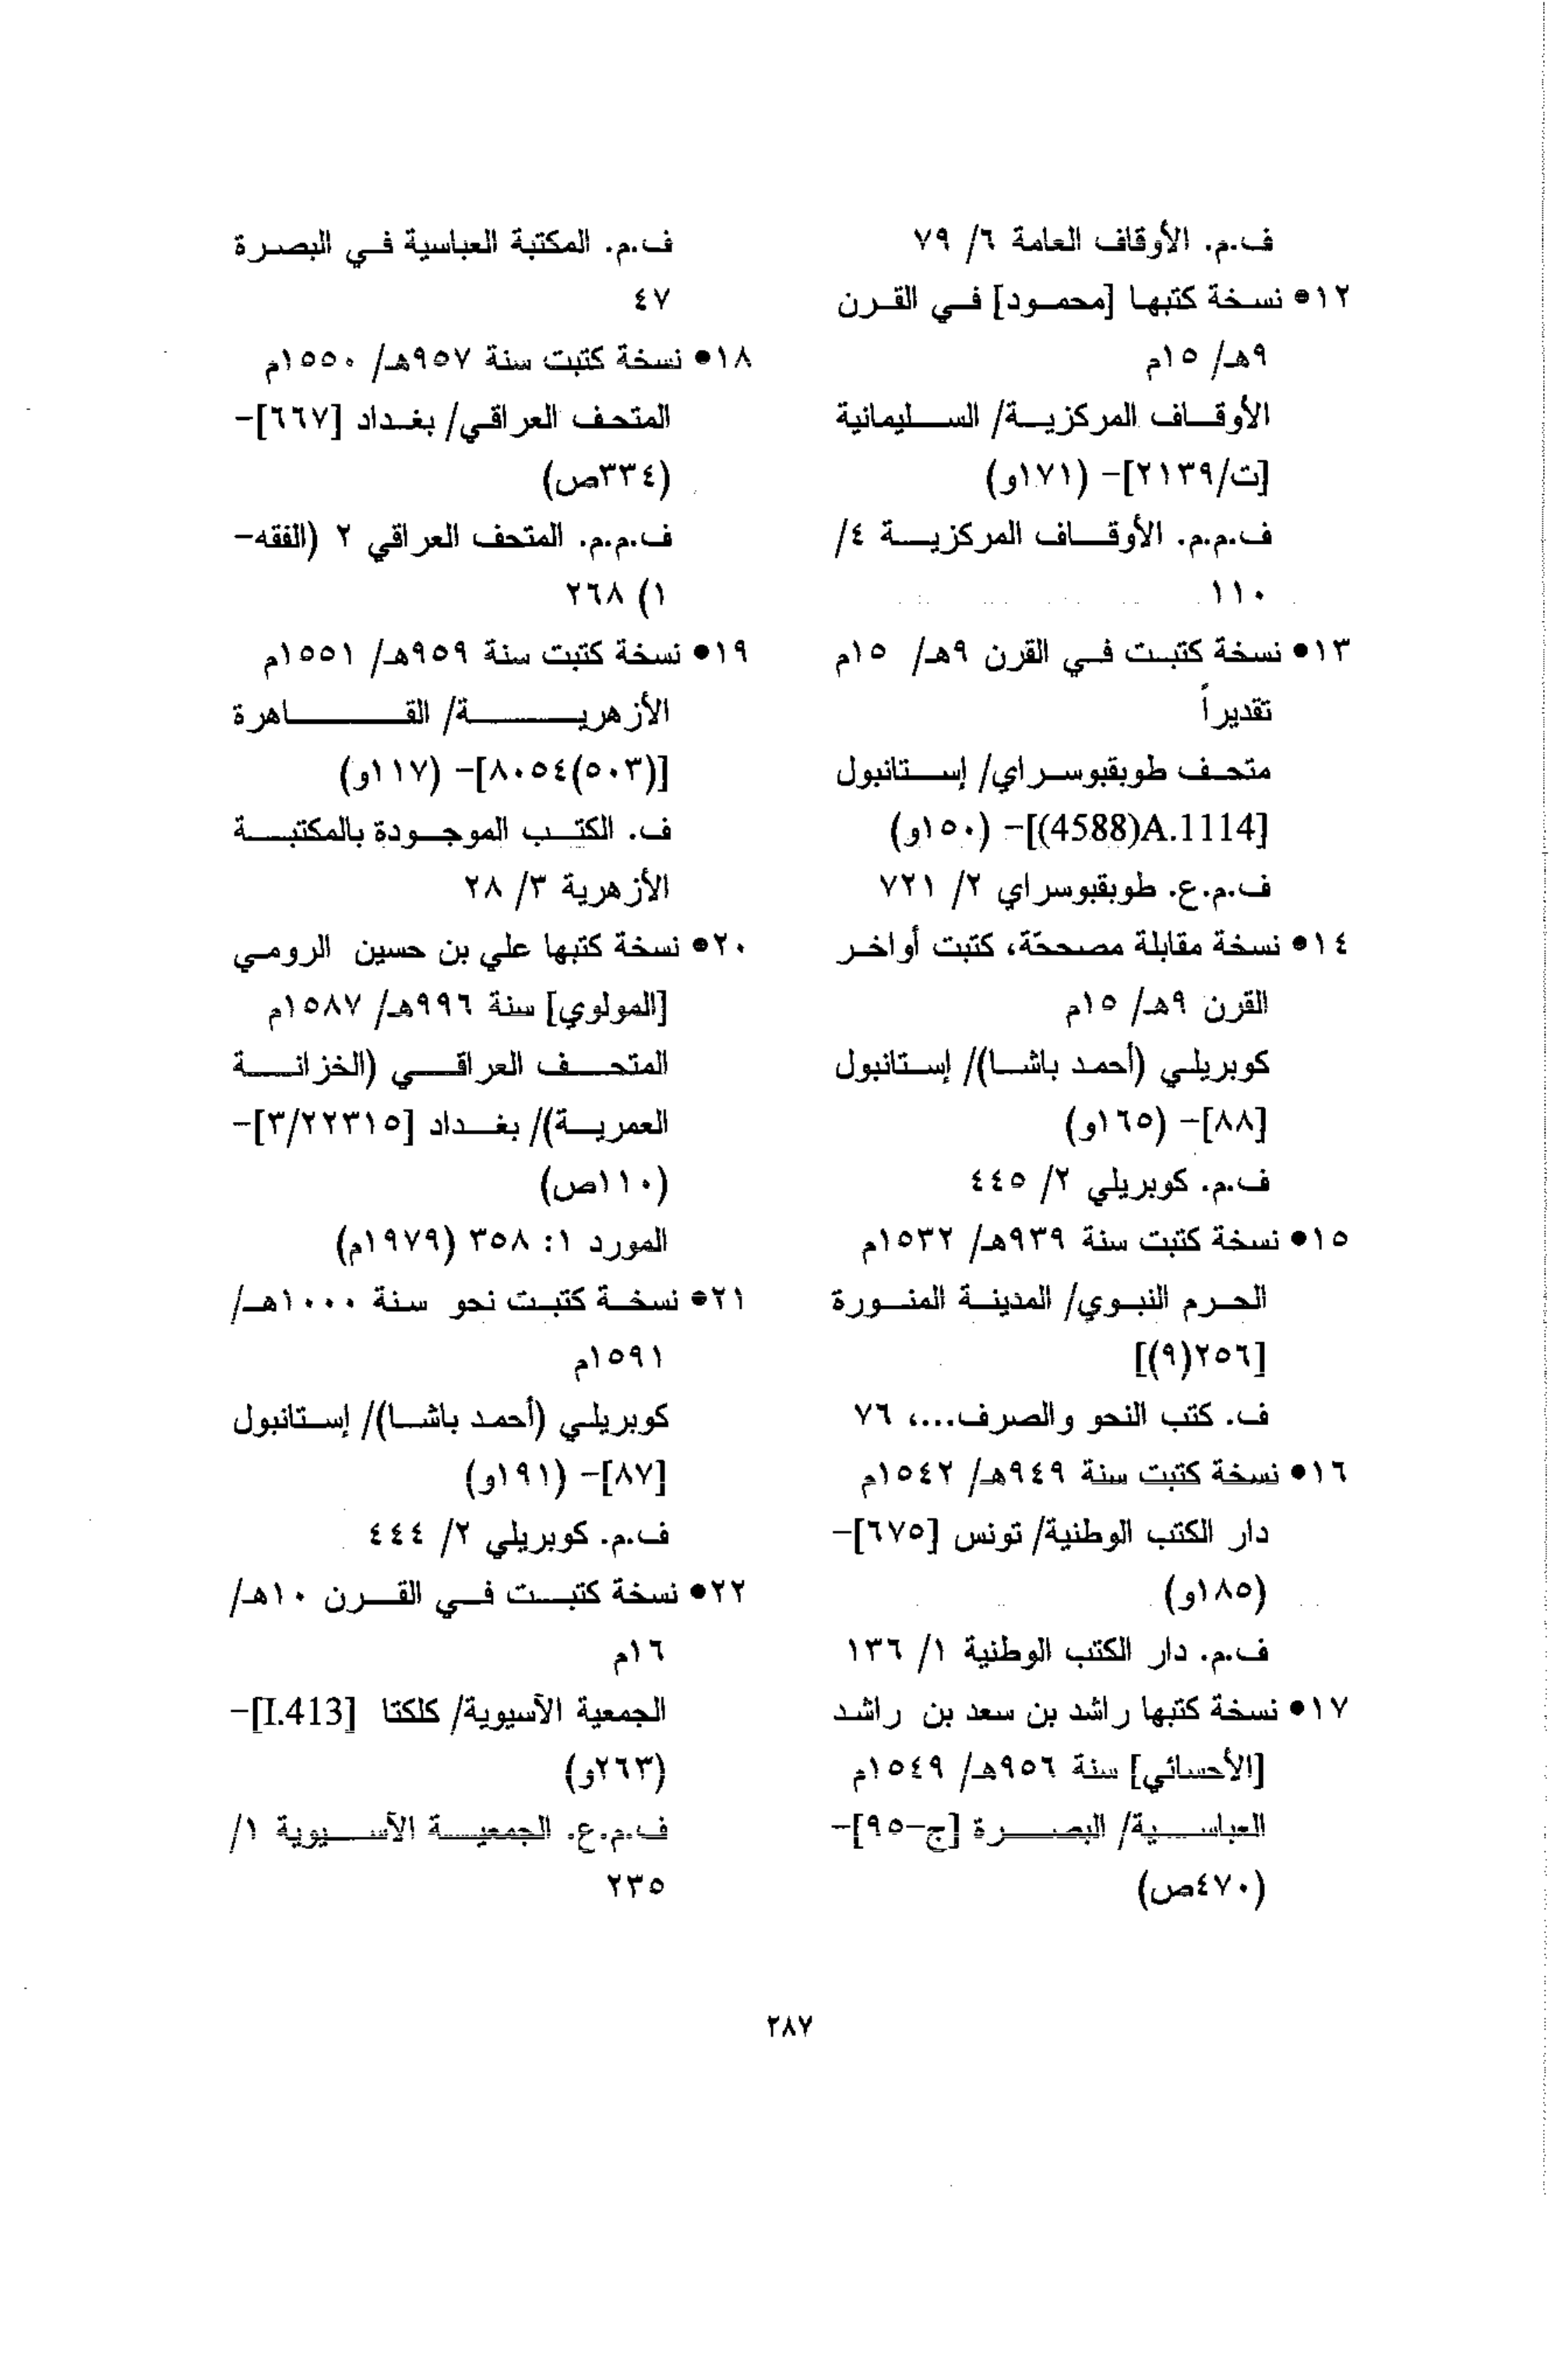 ف.م. الأوقاف العامة ٦/ ٧٩
١٢• نسخة كتبها [محمود] في القرن
٩هـ/ ١٥م
الأوقاف المركزية/ السليمانية
[ت/٢١٣٩]- (١٧١و)
ف.م.م. الأوقاف المركزية ٤/
١١٠
١٣• نسخة كتبت في القرن ٩هـ/ ١٥م
تقديراً
متحف طوبقبوسراي/ إستانبول
[A.1114(4588)]- (١٥٠و)
ف.م.ع. طوبقبوسراي ٢/ ٧٢١
١٤• نسخة مقابلة مصححّة، كتبت أواخر
القرن ٩هـ/ ١٥م
كوبريلي (أحمد باشا)/ إستانبول
[٨٨]- (١٦٥و)
ف.م. كوبريلي ٢/ ٤٤٥
١٥• نسخة كتبت سنة ٩٣٩هـ/ ١٥٣٢م
الحرم النبوي/ المدينة المنورة
[٢٥٦(٩)]
ف. كتب النحو والصرف...، ٧٦
١٦• نسخة كتبت سنة ٩٤٩هـ/ ١٥٤٢م
دار الكتب الوطنية/ تونس [٦٧٥]-
(١٨٥و)
ف.م. دار الكتب الوطنية ١/ ١٣٦
١٧• نسخة كتبها راشد بن سعد بن راشد
[الأحسائي] سنة ٩٥٦هـ/ ١٥٤٩م
العباسية/ البصرة [ج-٩٥]-
(٤٧٠ص)
ف.م. المكتبة العباسية في البصرة
٤٧
١٨• نسخة كتبت سنة ٩٥٧هـ/ ١٥٥٠م
المتحف العراقي/ بغداد [٦٦٧]-
(٣٣٤ص)
ف.م.م. المتحف العراقي ٢ (الفقه-
١) ٢٦٨
١٩• نسخة كتبت سنة ٩٥٩هـ/ ١٥٥١م
الأزهرية/ القاهرة
[(٥٠٣)٨٠٥٤]- (١١٧و)
ف. الكتب الموجودة بالمكتبة
الأزهرية ٣/ ٢٨
٢٠• نسخة كتبها علي بن حسين الرومي
[المولوي] سنة ٩٩٦هـ/ ١٥٨٧م
المتحف العراقي (الخزانة
العمرية)/ بغداد [٣/٢٢٣١٥]-
(١١٠ص)
المورد ١: ٣٥٨ (١٩٧٩م)
٢١• نسخة كتبت نحو سنة ١٠٠٠هـ/
١٥٩١م
كوبريلي (أحمد باشا)/ إستانبول
[٨٧]- (١٩١و)
ف.م. كوبريلي ٢/ ٤٤٤
٢٢• نسخة كتبت في القرن ١٠هـ/
١٦م
الجمعية الآسيوية/ كلكتا [I.413]-
(٢٦٣و)
ف.م.ع. الجمعية الآسيوية ١/
٢٣٥
٢٨٧